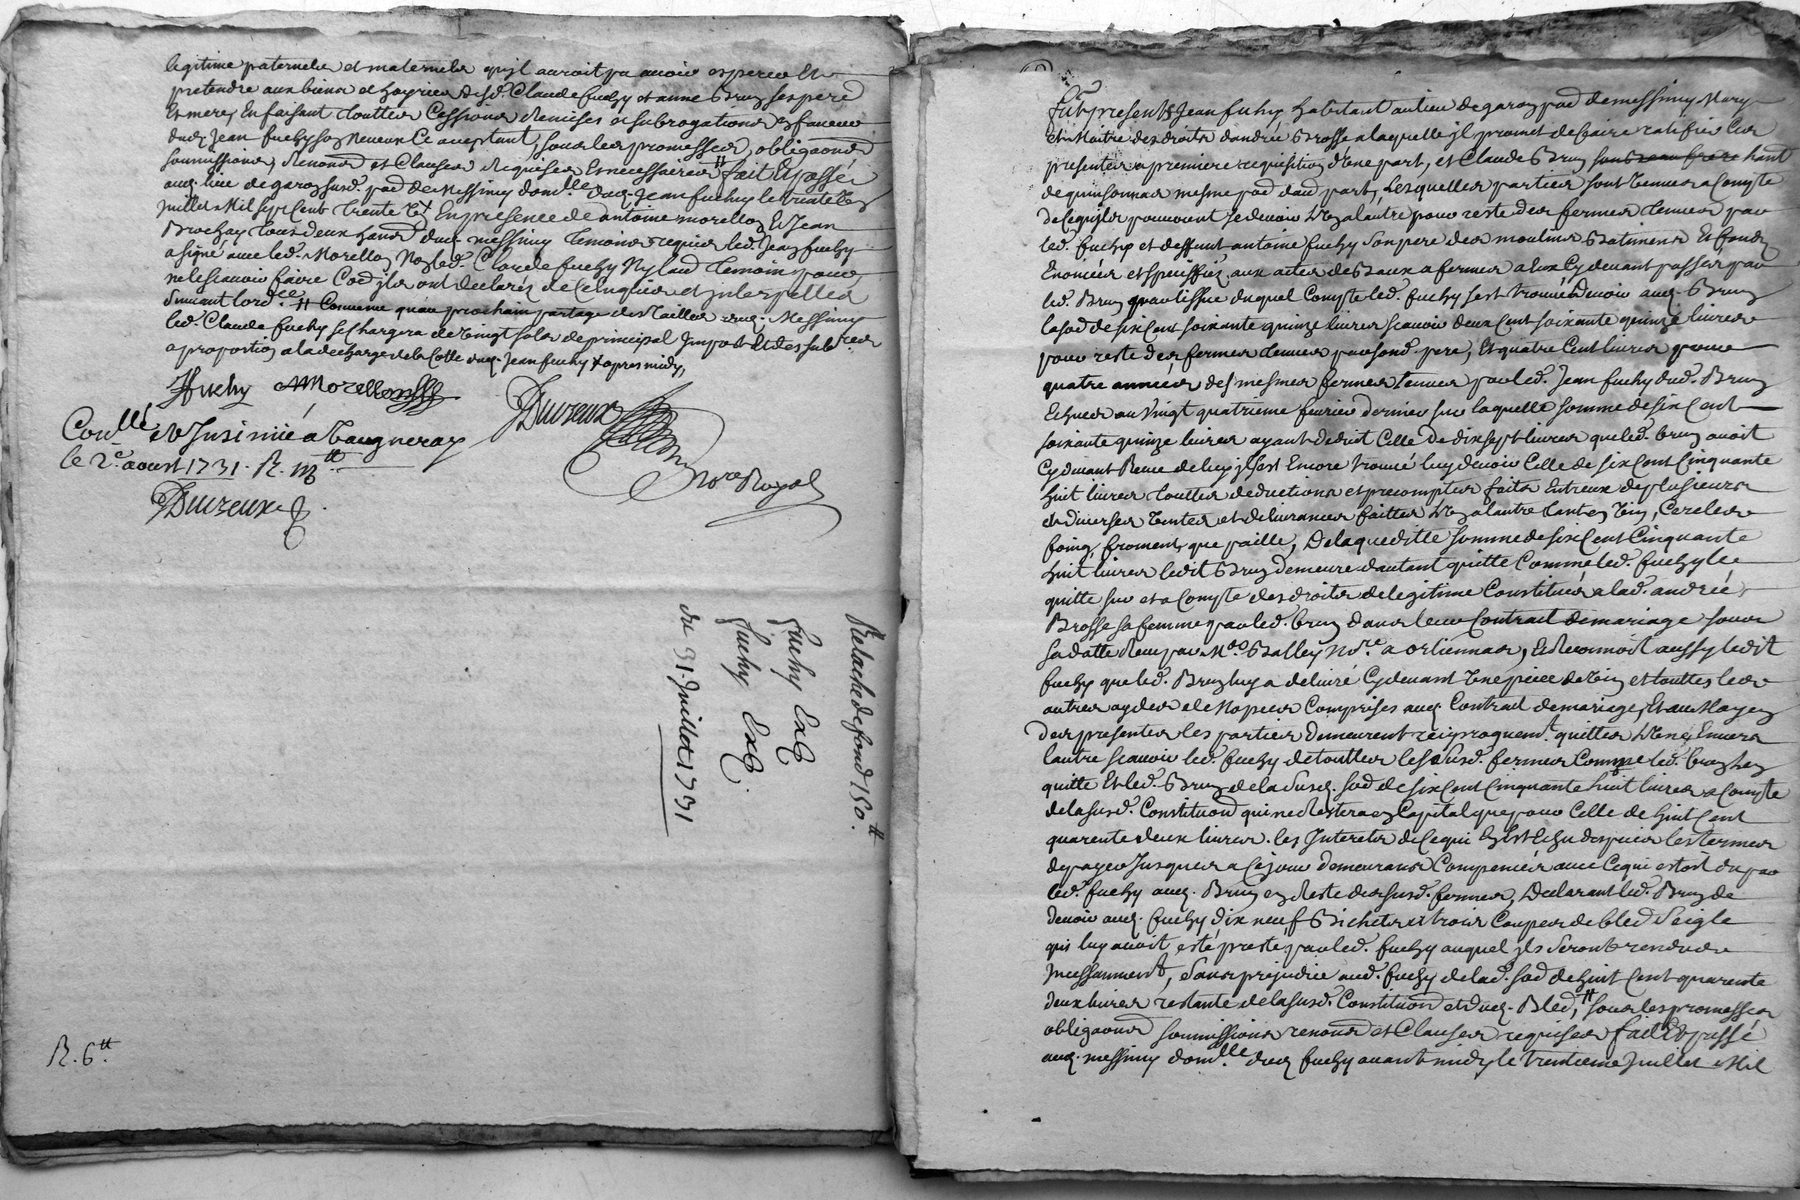 legitime paternelle et maternelle qu'il auroit pu avoir esperer et
pretendre aux biens et hoyries desd. Claude fuchy et anne Bruy ses pere
et mere, En faisant touttes Cessions Remises et subrogations en faveur
dud. Jean fuchy son neveu Ce acceptant, sous les promesses, obligaons
soumissions, Renonons et Clauses Requises Et necessaires # fait Et passé
aud. lieu de garon susd. pad de Messimy domlle dud. Jean fuchy le trente un
Juillet Mil sept Cent trente un En presence de antoine morellon Et Jean
Brochay tous deux habns dud. messimy temoins requis led. Jean fuchy
a signé avec led. Morellon Non led. Claude fuchy Ny laud. temoin pour
ne le scavoir faire Co'd ils ont declarés de Ce Enquis et interpellés
Suivant lordce # Convenu qu'au prochain partage des Tailles dud. Messimy
led. Claude fuchy se chargera de vingt sols de principal Impot Et des subces
a proportion a la decharge de la Cotte dud. Jean fuchy + apres midy,
JFuchy AMorellon
Duvzeux
Conllé et Insinué a Vaugneray
le 2e. aoust 1731. R. m tt
Duvzeux
nore Royal
Relache de fond 150.tt
fuchy Exé
fuchy Exé.
du 31. Juillet 1731
R. 6.tt
fut present Jean fuchy habitant au lieu de garon pad de messimy Mary
et Maitre des droits dandrée Brosse a laquelle jl promet de faire ratifier Les
presentes a premiere requisition d'une part, et Claude Bruy son beau frere habt
de quinsonnas mesme pad daud part, Lesquelles parties sont venues a Compte
de Cequ'ils pouvoient se devoir L'un a lautre pour reste des fermes tenues par
led. fuchy et deffunt antoine fuchy Son pere des moulins Batimens Et fonds
Enoncés et speciffiez aux actes de Baux a fermes a Eux Cy devant passes par
led. Bruy par lissue duquel Compte led. fuchy sest trouvé devoir aud. Bruy
la soe de six Cent soixante quinze livres scavoir deux Cent soixante quinze livres
pour reste des fermes tenues par sond. pere, Et quatre Cent livres pour
quatre années des mesmes fermes tenues par led. Jean fuchy dud. Bruy
Echues au vingt quatrieme fevrier dernier sur laquelle somme de six Cent
soixante quinze livres ayant deduit Celle de dix sept livres que led. bruy avoit
Cy devant Receue de luy jl sest Encore trouvé luy devoir Celle de six Cent Cinquante
huit livres touttes deductions et precomptes faits Entreux de plusieurs
et diverses ventes et delivrances faittes L'un a lautre tant en vin, Cercles
foing, froment, que paille, De laquelle ditte somme de six Cent Cinquante
huit livres ledit Bruy demeure dautant quitte Comme led. fuchy le
quitte sur et a Compte des droits de legitime Constitués a lad. andrée
Brosse sa femme par led. bruy dans leur Contrat de mariage sous
sa datte Receu par Me Balley Nore a orliennas, Et Reconnoit aussy ledit
fuchy que led. Bruy luy a delivré Cy devant Une piece de vin et touttes les
autres Comprises aud. Contrat de mariage, Et au Moyen
des presentes les parties demeurent reciproquemt. quittes L'une Envers
lautre scavoir led. fuchy de touttes les susd. fermes Comme led. bruy len
quitte Et led. Bruy de la susd. soe de six Cent Cinquante huit livres a Compte
de lasusd. Constituon qui ne Restera en Capital que pour Celle de huit Cent
quarente deux livres. les Interets de Cequi En Est Echu depuis les termes
de payer Jusques a Cejour demeurans Compensés avec Cequi estoit du par
led. fuchy aud. Bruy en Reste des susd. fermes, Declarant led. Bruy de
devoir aud. fuchy dix neuf Bichets et trois Coupes de bled Seigle
qui luy avoit esté presté par led. fuchy auquel jls Seront rendus
Incessamment, Sans prejudice aud. fuchy de lad. soe de huit Cent quarente
deux livres restante de lasusd. Constituon et dud. Bled, # sous les promesses
obligaons soumissions renonons et Clauses requises fait Et passé
aud. messimy domlle dud. fuchy avant midy le trentieme Juillet Mil